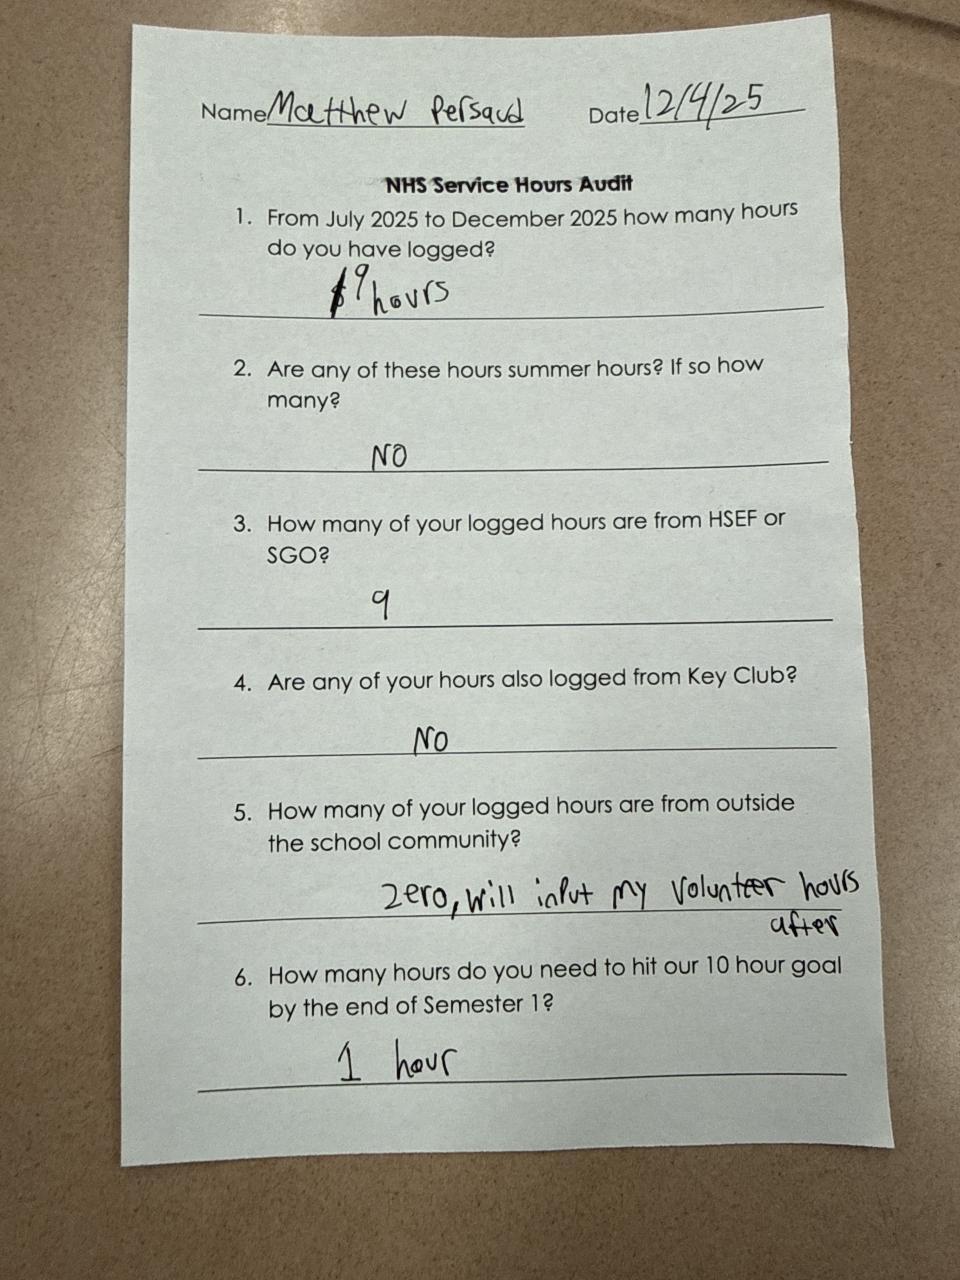 Name Matthew Persaud Date 12/4/25
NHS Service Hours Audit
1. From July 2025 to December 2025 how many hours
do you have logged?
9 hours
2. Are any of these hours summer hours? If so how
many?
NO
3. How many of your logged hours are from HSEF or
SGO?
9
4. Are any of your hours also logged from Key Club?
NO
5. How many of your logged hours are from outside
the school community?
zero, will input my volunteer hours
after
6. How many hours do you need to hit our 10 hour goal
by the end of Semester 1?
1 hour